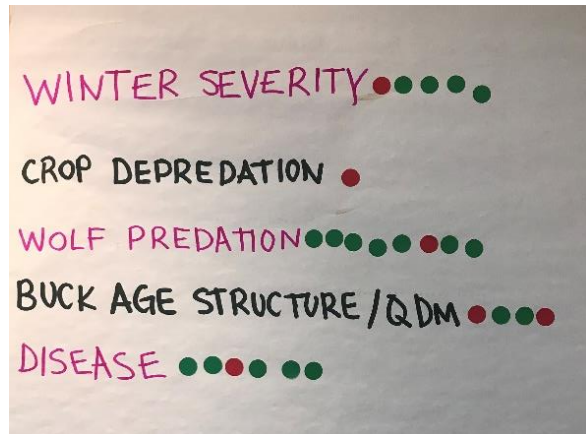 WINTER SEVERITY
CROP DEPREDATION
WOLF PREDATION
BUCK AGE STRUCTURE/QDM
DISEASE